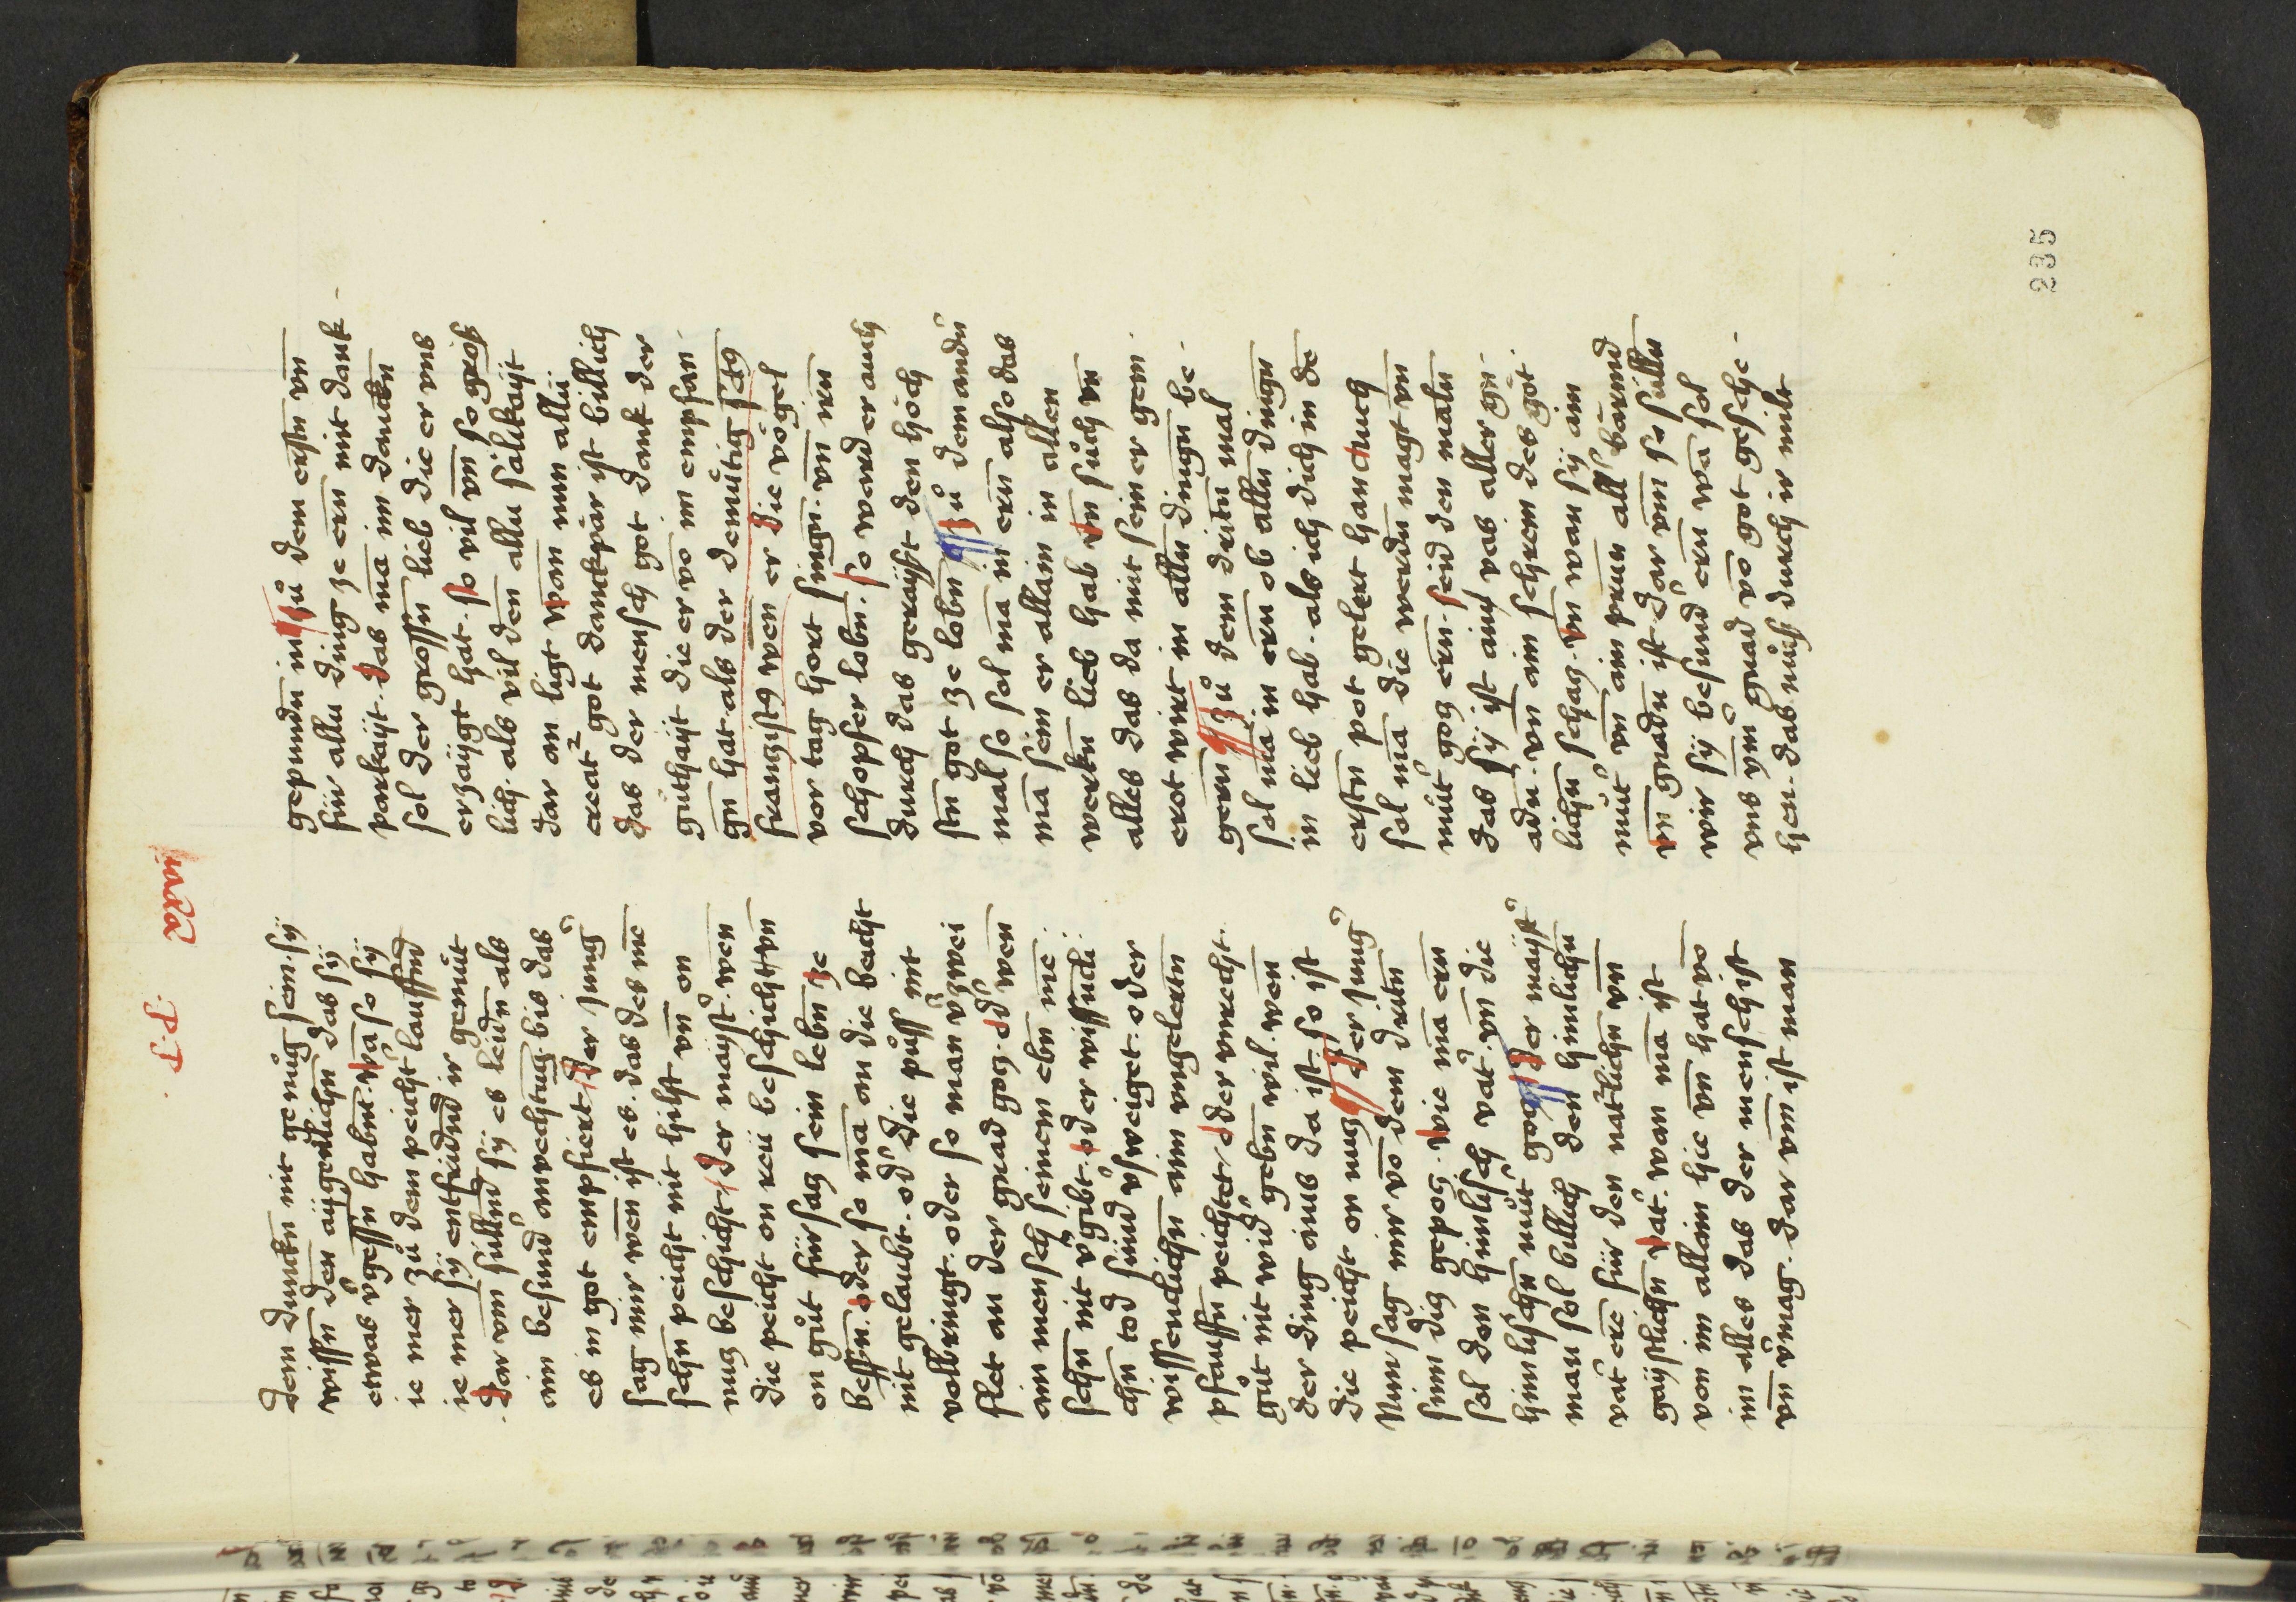 .P.T. 
235
dem duncken nit genüg sein. sÿ
wissn̄ den aÿgentlichn̄ das sÿ
etwas v͛gessn̄ habnt. wā so sÿ
ie mer zů dem peicht͛ lauffnd
ie mer sÿ entfridnd ir gemüt
dar vm̄ süllnd sÿ es leidn̄ als
ain besund͛ anvechtung. bis das
es in got empfiert. der jung͛
sag mir wen̄ ist es. das des mē
schn̄ peicht nit hilft vn̄ on
nucz beschicht. der maÿst͛. wen̄
die peicht on reü beschicht. vn̄
on gůt fürsacz sein lebn̄ ze
bessn̄. oder so mā an die beicht
nit gelaubt. od͛ die půss nit
volbringt. oder so man v͛zwei
flet an der gnad gocz. od͛ wen̄
ain mensch seinem ebn̄ mē
schn̄ nit v͛gibt. oder wissentli
chn̄ tod sünd v͛sweiget. oder
wissentlichn̄ aim vngelertn̄
pfaffn̄ peichtet. oder vnrecht
gůt nit wid͛ gebn̄ wil. wen̄
der ding ains da ist. so ist
die peicht on nucz. der jung͛
Nun sag mir vō dem dritn̄
sinn diß gepocz. wie mā ern̄
sol den himlisch vat͛. vn̄ die
himlischn̄ můt͛ gocz. der maÿst͛
man sol billich den himlischn̄
vat͛ ere für den natirlichn̄ vn̄
gaÿstlichn̄ vat͛. wan mā ist
von im allain hie vn̄ hat vō
im alles das der mensch ist
vn̄ v͛mag. dar vm̄ ist man
gepundn̄ in zů dem erstn̄ vn̄
für allu ding ze ern̄ mit dank
perkaÿt. das mā im danckn̄
sol der grossn̄ lieb die er vns
erzaÿgt hat. so vil vm̄ so gröss
lich. als vil den̄ allu sälikaÿt
dar an ligt. von nun allü
creat͛ got danckpär ist billich
das der mensch got dank der
gůthaÿt die er vō im empfan
gn̄ hat. als der demütig sctꝰ
franziscꝰ wen er die vögel
vor tag hort singn. vn̄ irn̄
schöpfer lobn̄. so ward er auch
durch das geraÿsst den höch
stn̄ got ze lobn̄. zů dem andn͛
mal so sol mā in ern̄ also das
mā sein er allain in allen
werckn̄ lieb hab vn̄ sůch vn̄
alles das da mit sein er gem
erot wirt in allen dingn̄ be
gern̄. zů dem dritn̄ mal
sol mā in ern̄ ob alln̄ dingn̄
in lieb hab. als ich dich in dē
erstn̄ pot gelert han. auch
sol mā die werdn̄ magt vn̄
můt͛ gocz ern̄. seid den maln̄
das sÿ ist ains vas aller gn
adn̄. vn̄ ain schrein des göt
lichn̄ schacz. vn̄ wan sÿ ain
můt͛ vn̄ ain prun̄ all͛ barmd
vn̄ gnadn̄ ist. dar vm̄ so sülln̄
wir sÿ besund͛ ern̄ wā sol
vns ÿm͛ gnad vō got gesche
hen. das můss durch ir milt